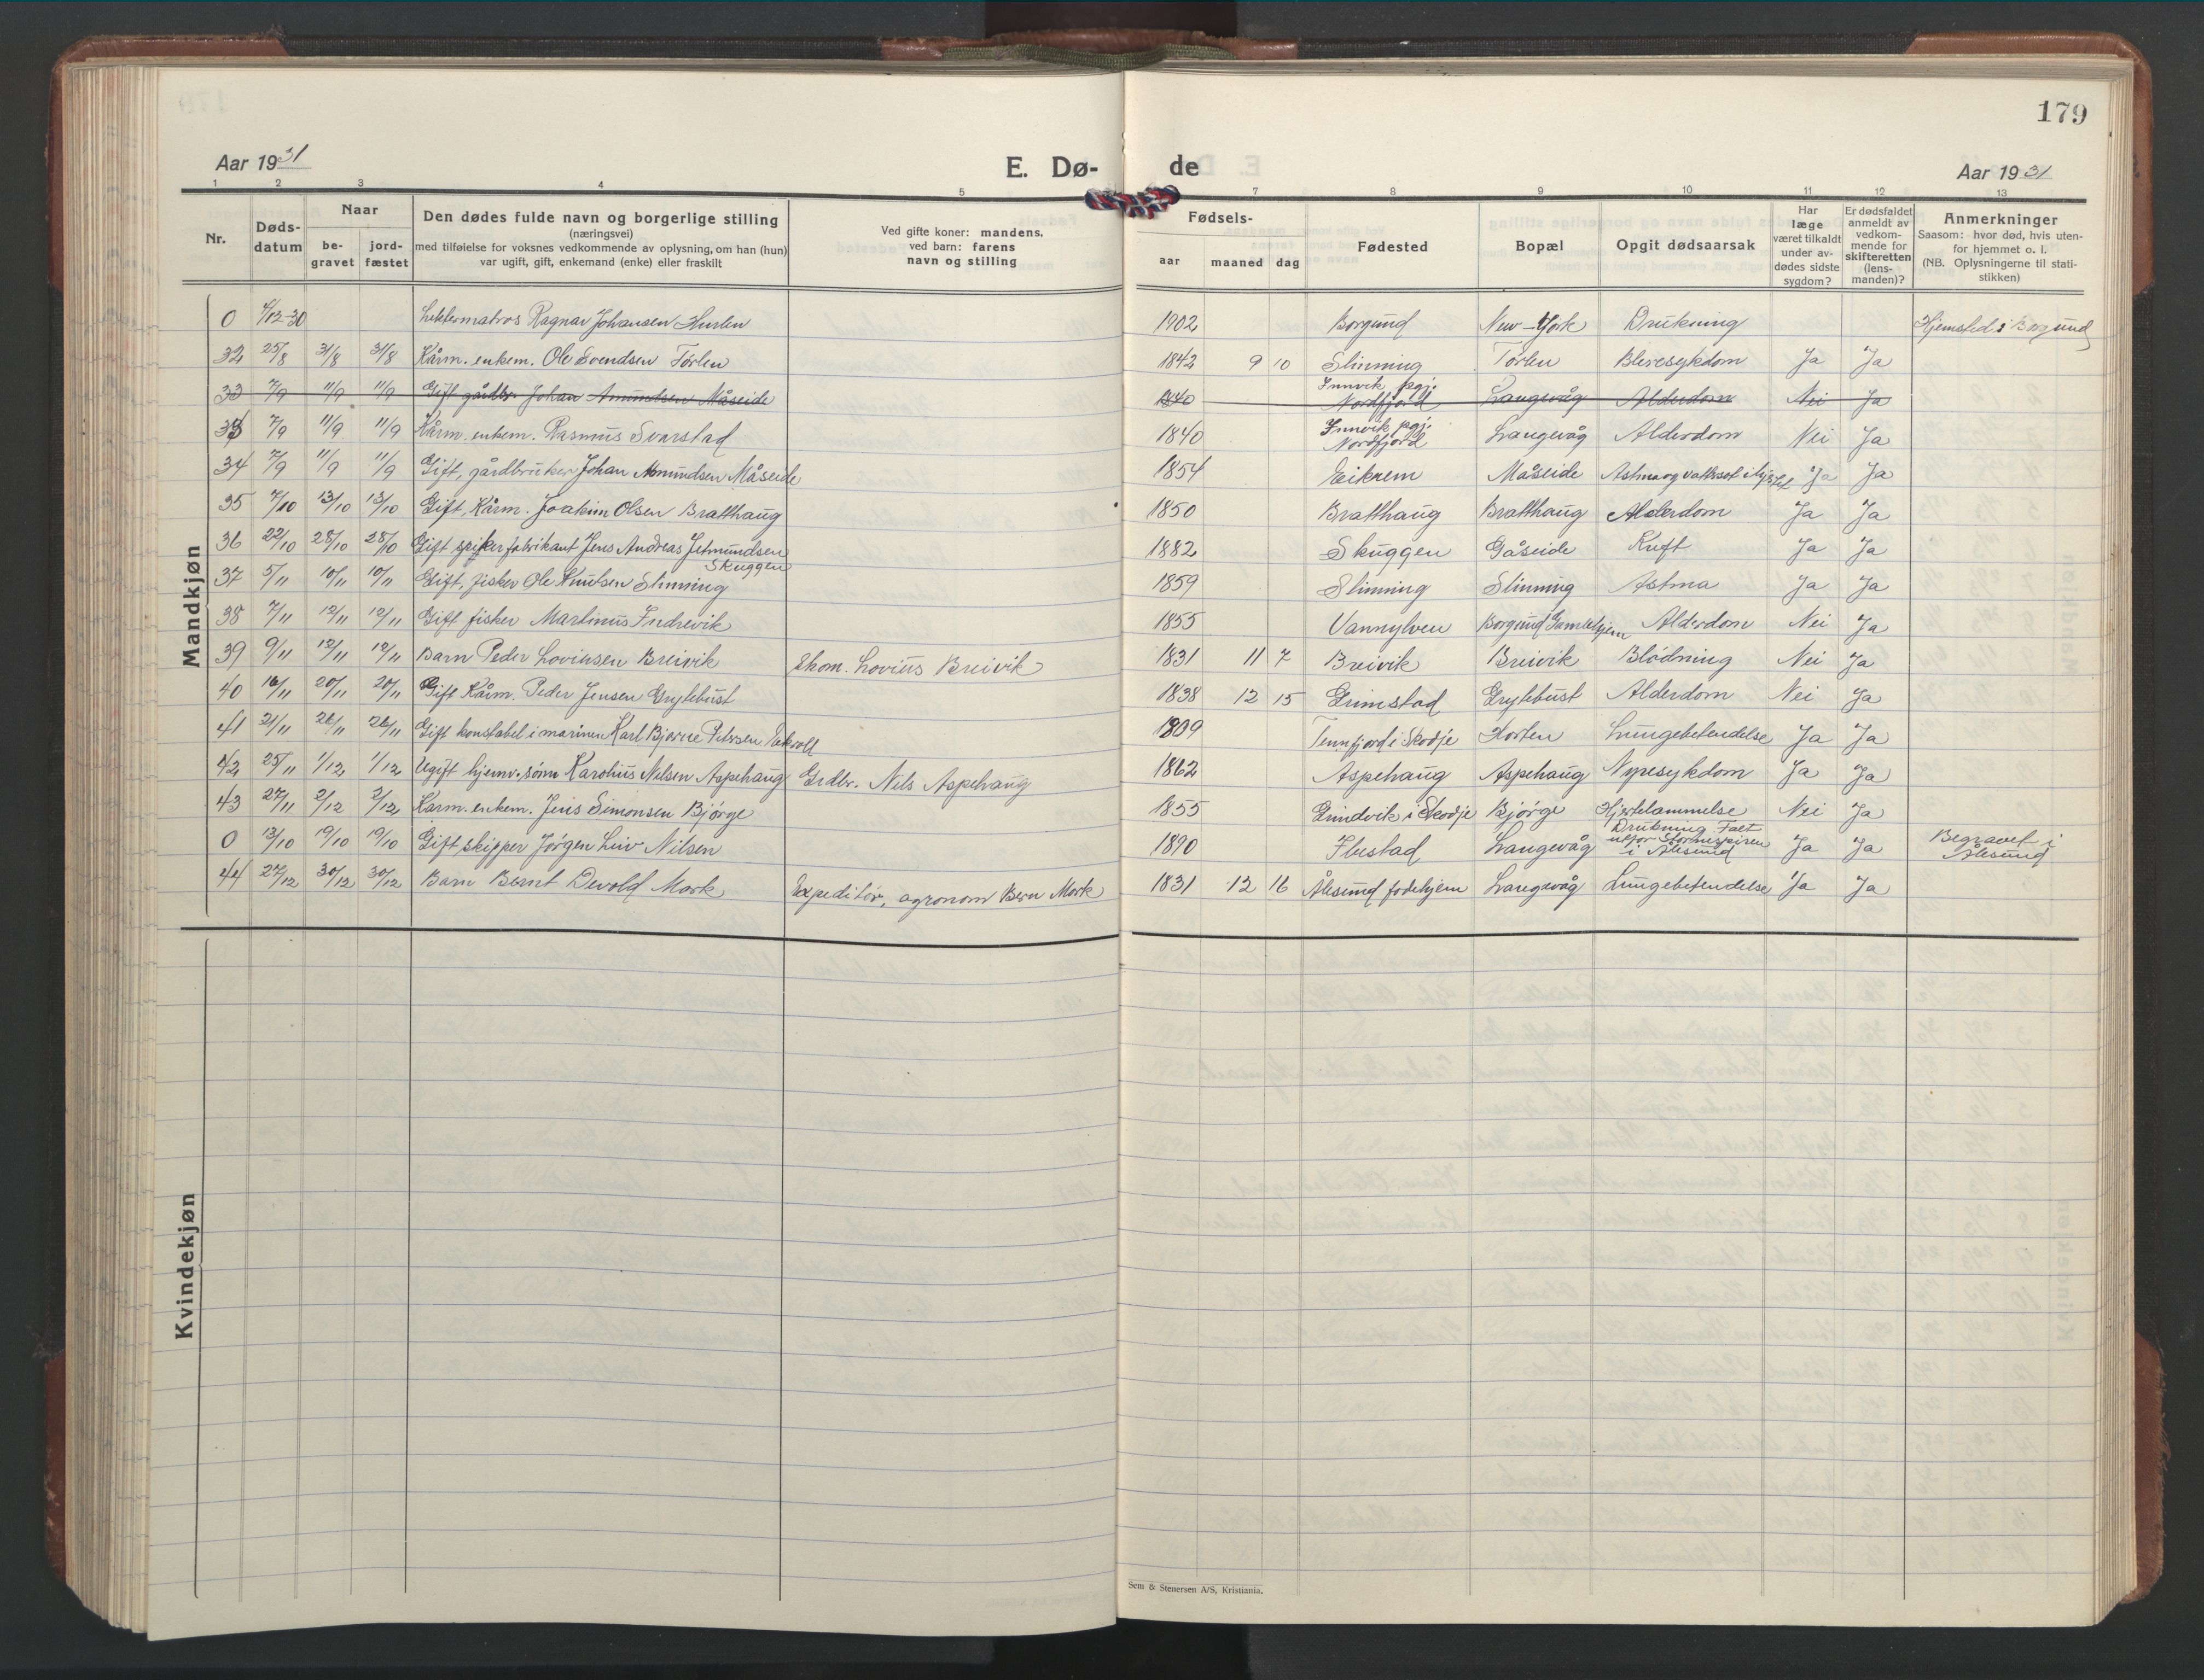 179
Aar 1931
E. Dø-
de
Aar 1931
1 2 3 4 5 7 8 9 10 11 12 13
Nr.
Døds-
datum
Naar
be-
gravet
jord-
fæstet
Den dødes fulde navn og borgerlige stilling
(næringsvei)
med tilføielse for voksnes vedkommende av oplysning, om han (hun)
var ugift, gift, enkemand (enke) eller fraskilt
Ved gifte koner: mandens,
ved barn: farens
navn og stilling
Fødsels-
aar maaned dag
Fødested
Bopæl
Opgit dødsaarsak
Har
læge
været tilkaldt
under av-
dødes sidste
sygdom?
Er dødsfaldet
anmeldt av
vedkom-
mende for
skifteretten
(lens-
manden)?
Anmerkninger
Saasom: hvor død, hvis uten-
for hjemmet o. l.
(NB. Oplysningerne til stati-
stikken)
Mandkjøn
0 /12-30 Lektermatros Ragnar Johansen Hurlen 1902 Borgund New-York Drukning Hjemsted i Borgund
32 25/8 31/8 31/8 Kårm. enkem. Ole Svendsen Tørlen 1842 9 10 Slinning Tørlen Bleresykdom Ja Ja
33 7/9 11/9 11/9 Gift gårdbr. Johan Amundsen Måseide 1840 Innvik pgj. Nordfjord Langevåg Alderdom Nei Ja
33 7/9 11/9 11/9 Kårm. enkem. Rasmus Svarstad 1840 Innvik pgj. Nordfjord Langevåg Alderdom Nei Ja
34 7/9 11/9 11/9 Gift, gårdbruker Johan Amundsen Måseide 1854 Eikrem Måseide Astma og vattersot i hjertet Ja Ja
35 7/10 13/10 13/10 Gift, Kårm. Joakim Olsen Bratthaug 1850 Bratthaug Bratthaug Alderdom Ja Ja
36 22/10 28/10 28/10 Gift spikerfabrikant Jens Andreas Jetmundsen Skuggen 1882 Skuggen Gåseide Kreft Ja Ja
37 5/11 10/11 10/11 Gift, fisker Ole Knutsen Slinning 1859 Slinning Slinning Astma Ja Ja
38 7/11 12/11 12/11 Gift fisker Martinus Indrevik 1855 Vannylven Borgund Gamlehjem Alderdom Nei Ja
39 9/11 12/11 12/11 Barn Peder Loviusen Breivik Skom. Lovius Breivik 1831 11 7 Breivik Breivik Blødning Nei Ja
40 16/11 20/11 20/11 Gift Kårm. Peder Jensen Grytebust 1838 12 15 Grimstad Grytebust Alderdom Nei Ja
41 21/11 26/11 26/11 Gift konstabel i marinen Karl Bjarne Petersen 1909 Tennfjord i Skodje Horten Lungebetendelse Ja Ja
42 25/11 1/12 1/12 Ugift hjemv. sønn Karolius Nilsen Aspehaug Grdbr. Nils Aspehaug 1862 Aspehaug Aspehaug Nyresykdom Ja Ja
43 27/11 2/12 2/12 Kårm. enkem. Jens Simonsen Bjørge 1855 Grindvik i Skodje Bjørge Hjertelammelse Nei Ja
0 13/10 19/10 19/10 Gift, skipper Jørgen Liiv Nilsen 1890 Flestad Langevåg Drukning Falt utfor Stornespiren i Ålesund Ja Ja Begravet i Ålesund
44 27/12 30/12 30/12 Barn Bernt Devold Mork Expeditør, agronom Bern Mork 1831 12 16 Ålesund fødehjem Langevåg Lungebetendelse Ja Ja
Kvindekjøn
Sem & Stenersen A/S, Kristiania.